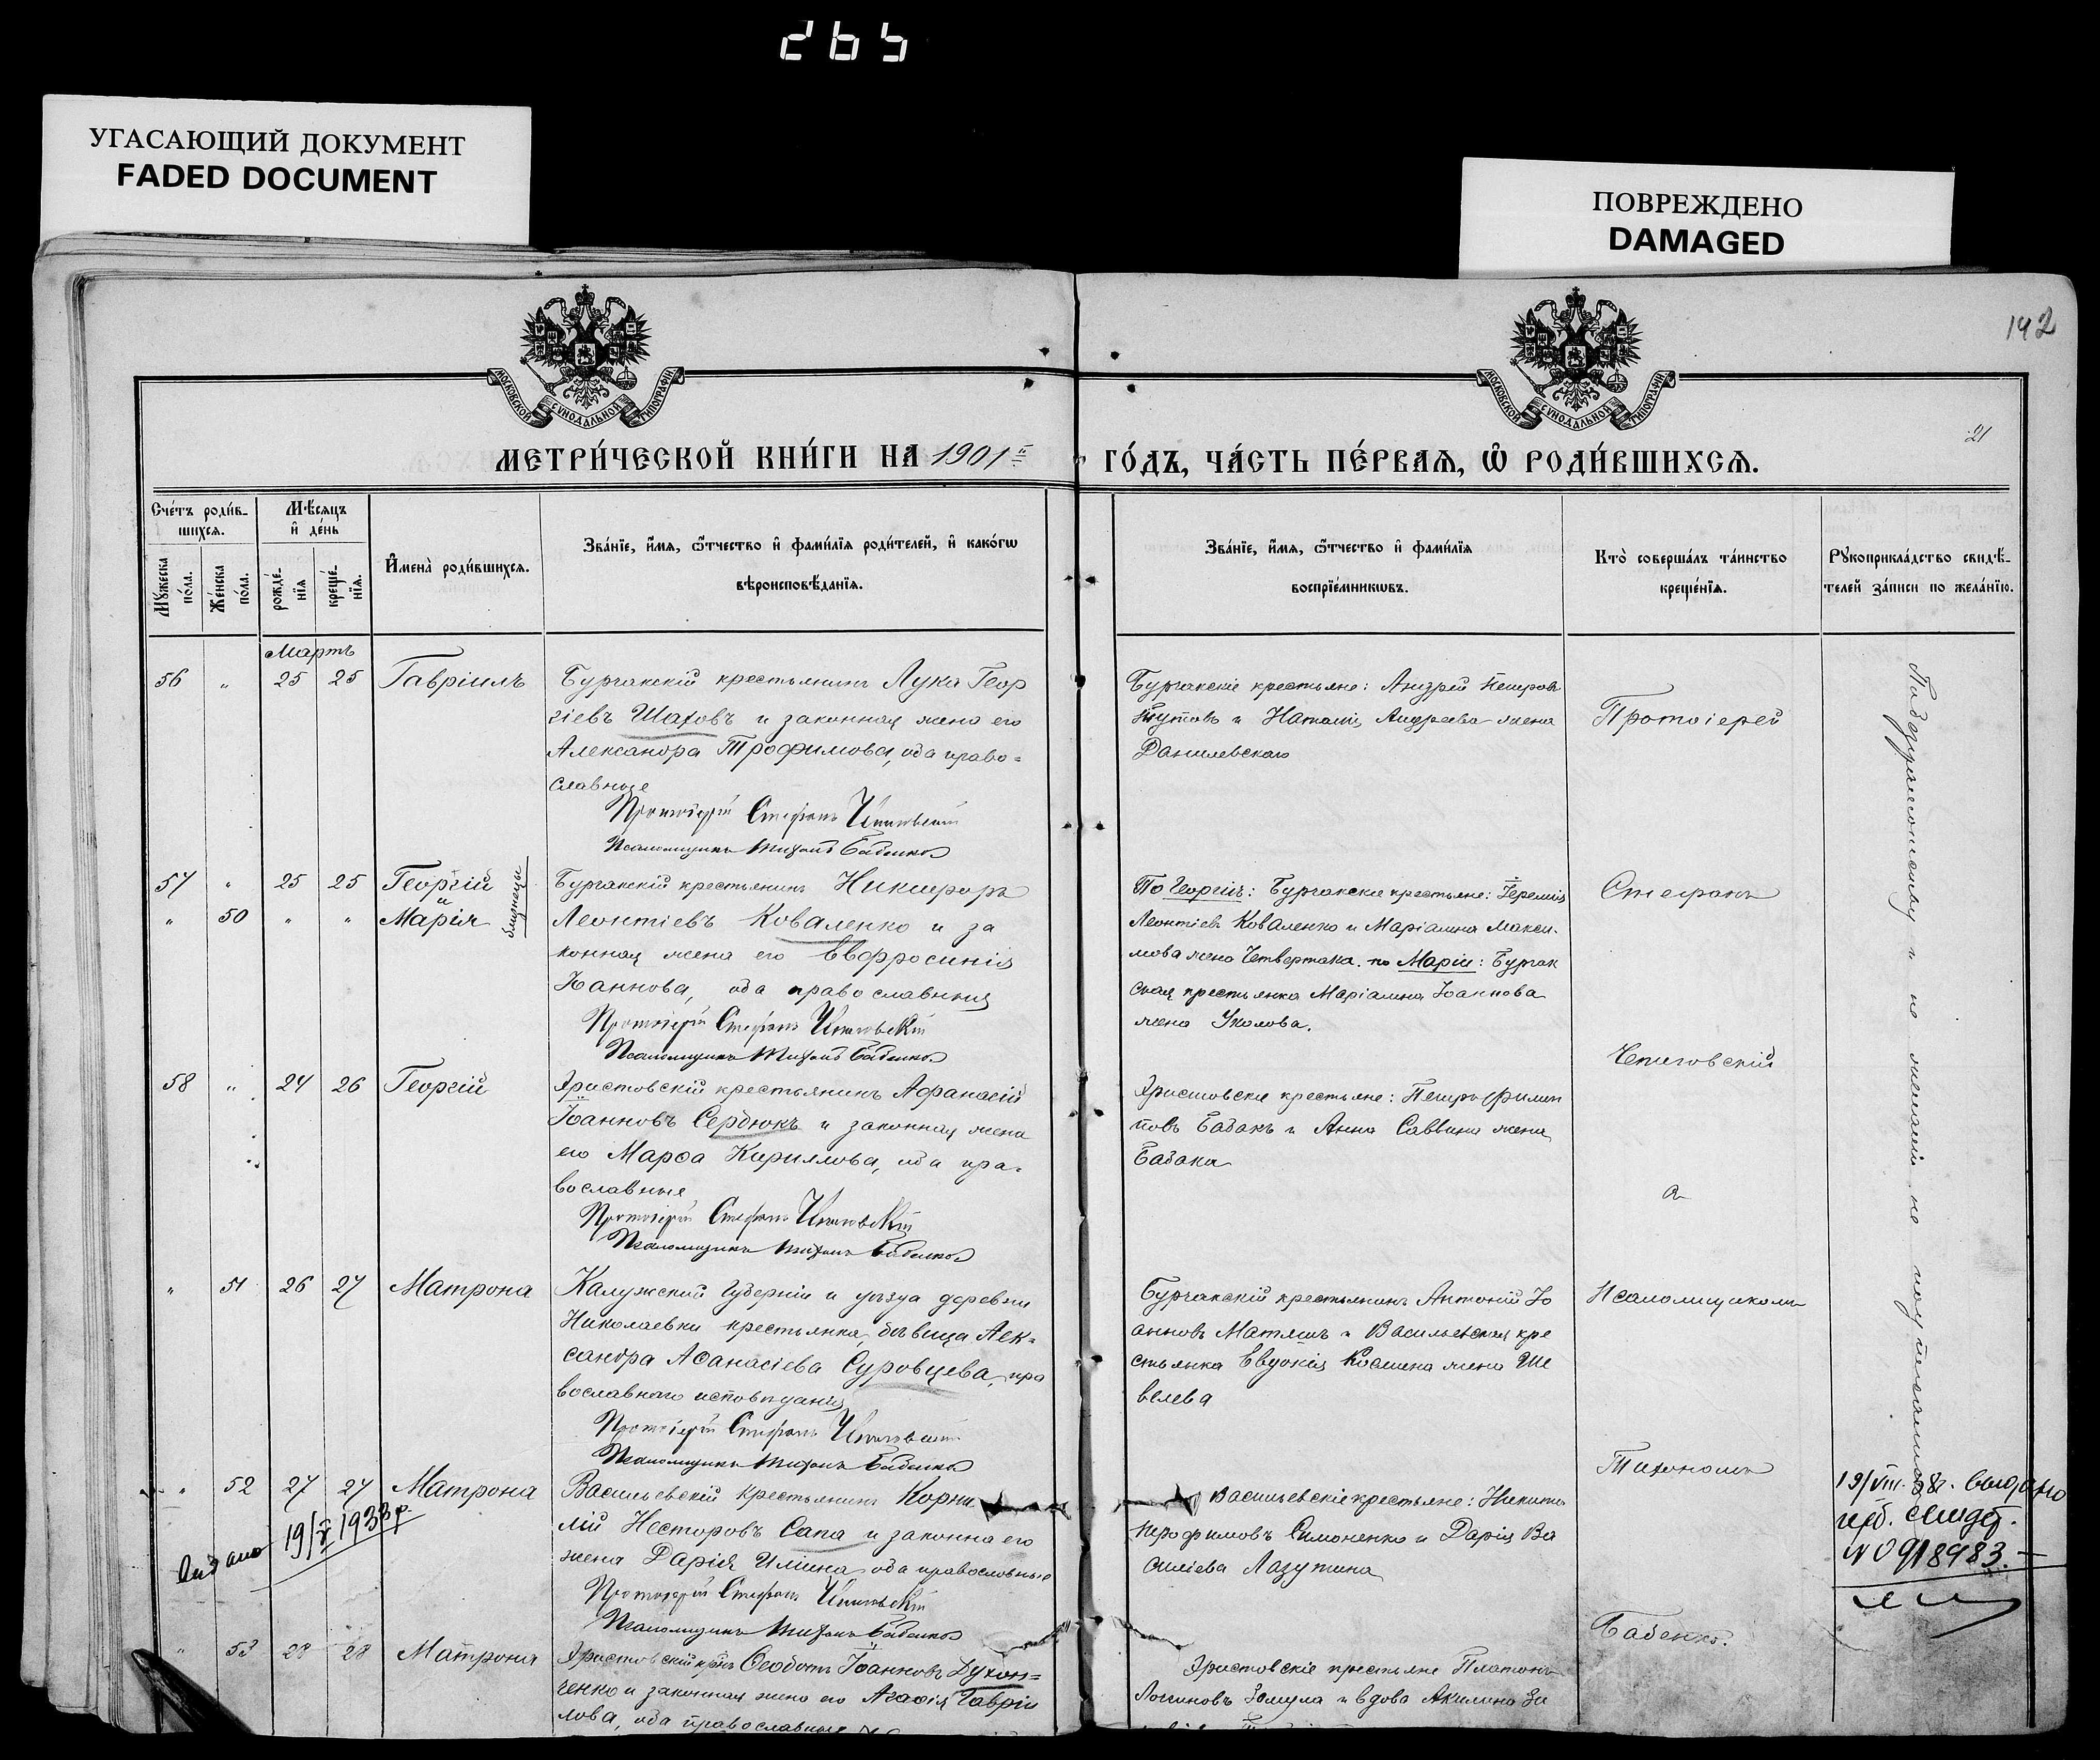 265
УГАСАЮЩИЙ ДОКУМЕНТ
FADED DOCUMENT
ПОВРЕЖДЕНО
DAMAGED
142
МОСКОВСКОЙ СѴНОДАЛЬНОЙ ТИПОГРАФІИ
МОСКОВСКОЙ СѴНОДАЛЬНОЙ ТИПОГРАФІИ
21
МЕТРИ́ЧЕСКОЙ КНИ́ГИ НА 1901й ГО́ДЪ, ЧА́СТЬ ПЕ́РВАѦ, Ѡ РОДИ́ВШИХСѦ.
Сче́тъ роди́в-
шихсѧ.
Мꙋжеска
по́ла.
Же́нска
по́ла.
Мѣ́сяцъ
и де́нь
рожде́-
нїѧ
креще́-
нїѧ.
Имена̀ роди́вшихсѧ.
Зва́нїе, и́мѧ, ѻ́тчество и фами́лїѧ роди́телей, и како́гѡ
вѣроисповѣ́данїѧ.
Зва́нїе, и́мѧ, ѻ́тчество и фами́лїѧ
воспрїе́мникѡвъ.
Кто̀ соверша́лъ та́инство
креще́нїѧ.
Рꙋкоприкла́дство свидѣ́-
телей за́писи по жела́нїю.
Мартъ
56 " 25 25 Гавріилъ
Бургакскій крестьянинъ Лука Геор
гіевъ Шаховъ и законная жена его
Александра Трофимова, оба право-
славные
Протоіерей Стефанъ
Псаломщикъ Тихонъ Бабенко
Бургакскіе крестьяне: Андрей Петровъ
и Наталія Андреева жена
Данилевскаго
Протоіерей
57 " 25 25 Георгій
и
" 50 " " Марія
близнецы
Бургакскій крестьянинъ Никифоръ
Леонтіевъ Коваленко и за
конная жена его Евфросинія
Іоаннова, оба православныя
Протоіерей Стефанъ
Псаломщикъ Тихонъ Бабенко
По Георгіи: Бургакскіе крестьяне: Іеремія
Леонтіевъ Коваленко и Маріамна Макси-
мова жена Четвертака. по Маріи: Бургак
ская крестьянка Маріамна Іоаннова
жена Уколова.
Стефанъ
58 " 24 26 Георгій
Христовскій крестьянинъ Афанасій
Іоанновъ Сердюкъ и законная жена
его Марѳа Кириллова, оба пра-
вославные
Протоіерей Стефанъ
Псаломщикъ Тихонъ Бабенко
Христовскіе крестьяне: Петръ Филип
повъ Бабакъ и Анна Саввина жена
Бабака
" 51 26 27 Матрона
Калужской Губерніи и уѣзда деревни
Николаевки крестьянка, дѣвица Алек-
сандра Аѳанасіева Суровцева, пра
вославнаго исповѣданія
Протоіерей Стефанъ
Псаломщикъ Тихонъ Бабенко
Бургакскій крестьянинъ Антоній Іо
анновъ Матяшъ и Васильевская кре
стьянка Евдокія Косьмина жена Ше
велева
Псаломщикомъ
Тихономъ
" 52 27 27 Матрона
Васильевскій крестьянинъ Корни
лій Несторовъ Сапа и законна его
жена Дарія Иліина, оба православные
Протоіерей Стефанъ
Псаломщикъ Тихонъ Бабенко
Видано 19/V 1933р.
Васильевскіе крестьяне: Никита
Трофимовъ Симоненко и Дарія Ва
сильева Лазутина
Бабенко.
N 0918983.
" 53 28 28 Матрона
Христовскій крест. Ѳеодотъ Іоанновъ Духон-
ченко и законная жена его Агаѳія Гаврии
лова, оба православные
Христовскіе крестьяне Платонъ
Логиновъ и вдова Акилина